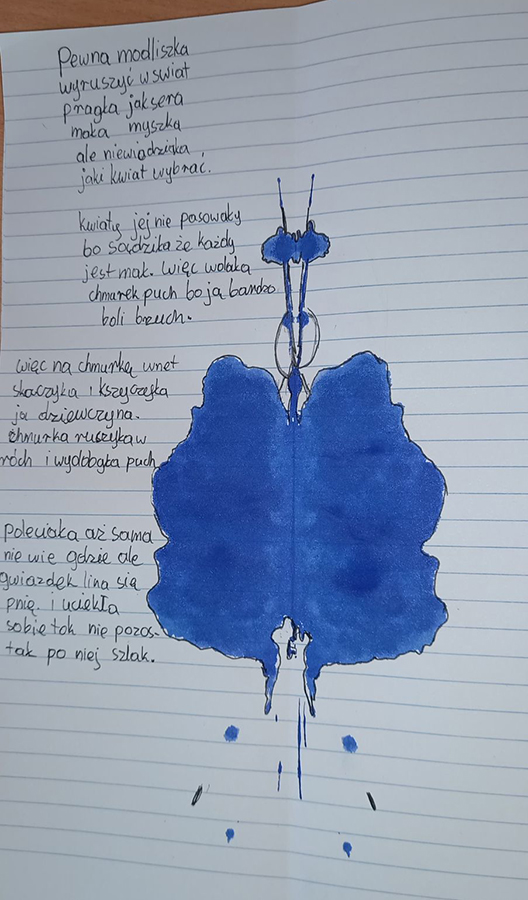 Pewna modliszka
wyruszyć w świat
pragła jak sera
mała myszka
ale niewiedziała
jaki kwiat wybrać.
kwiaty jej nie pasowały
bo sądziła że każdy
jest mak. więc wołała
chmurek puch bo ją bardzo
boli brzuch.
więc na chmurkę wnet
skoczyła i kszyczyła
ja dziewczyna.
chmurka ruszyła w
róch i wydobyła puch
poleciała aż sama
nie wie gdzie ale
gwiazdek lina się
pnie. i uciekła
sobie tak nie pozos-
tał po niej szlak.